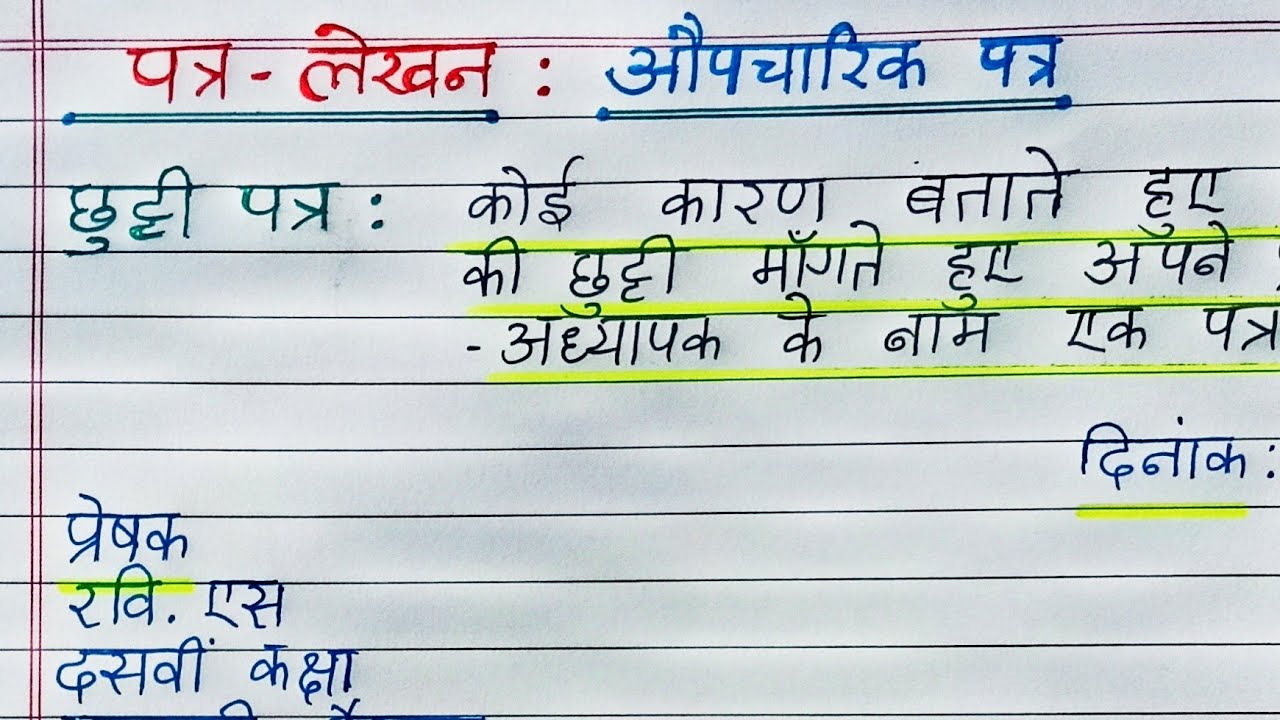 पत्र - लेखन : औपचारिक पत्र
छुट्टी पत्र : कोई कारण बताते हुए
की छुट्टी माँगते हुए अपने
- अध्यापक के नाम एक पत्र
दिनांक :
प्रेषक
रवि. एस
दसवीं कक्षा